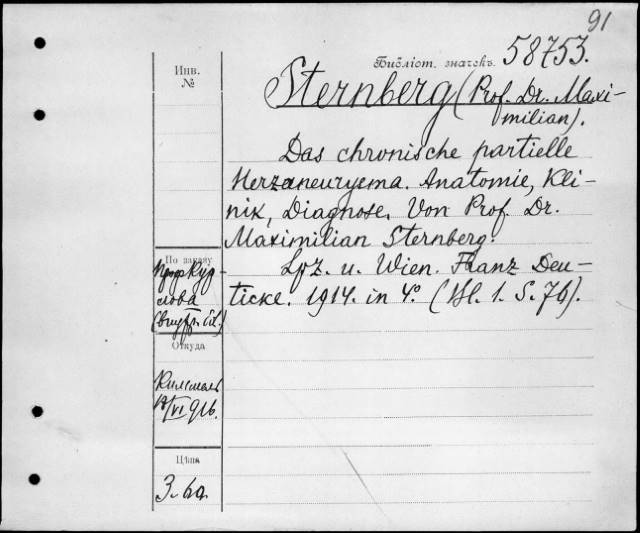 91
Библіот. значекъ 58753.
Инв.
№
Sternberg (Prof. Dr. Maxi-
milian).
Das chronische partielle
Herzaneurysma. Anatomie, Kli-
nik, Diagnose. Von Prof. Dr.
Maximilian Sternberg.
Lpz. u. Wien. Franz Deu-
ticke. 1914. in 4° (Bl. 1. S. 76).
По заказу
Проф Кур-
лова
Откуда
VI 916.
Цѣна
3.60